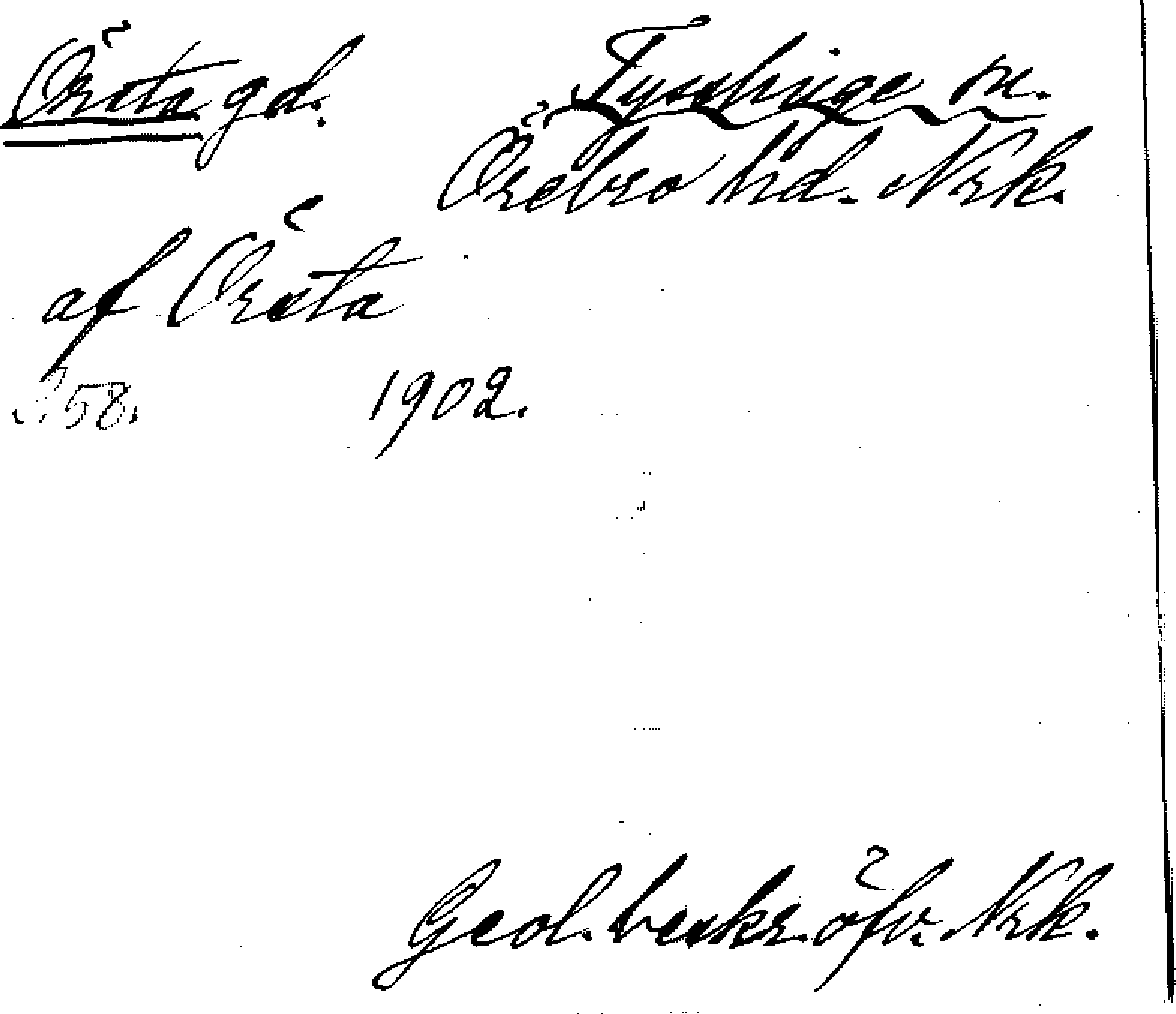 Örsta gd. Tysslinge sn.
Örebro hd. Nrk.
af Örsta
1902.
Geol. beskr. öfv. Nrk.